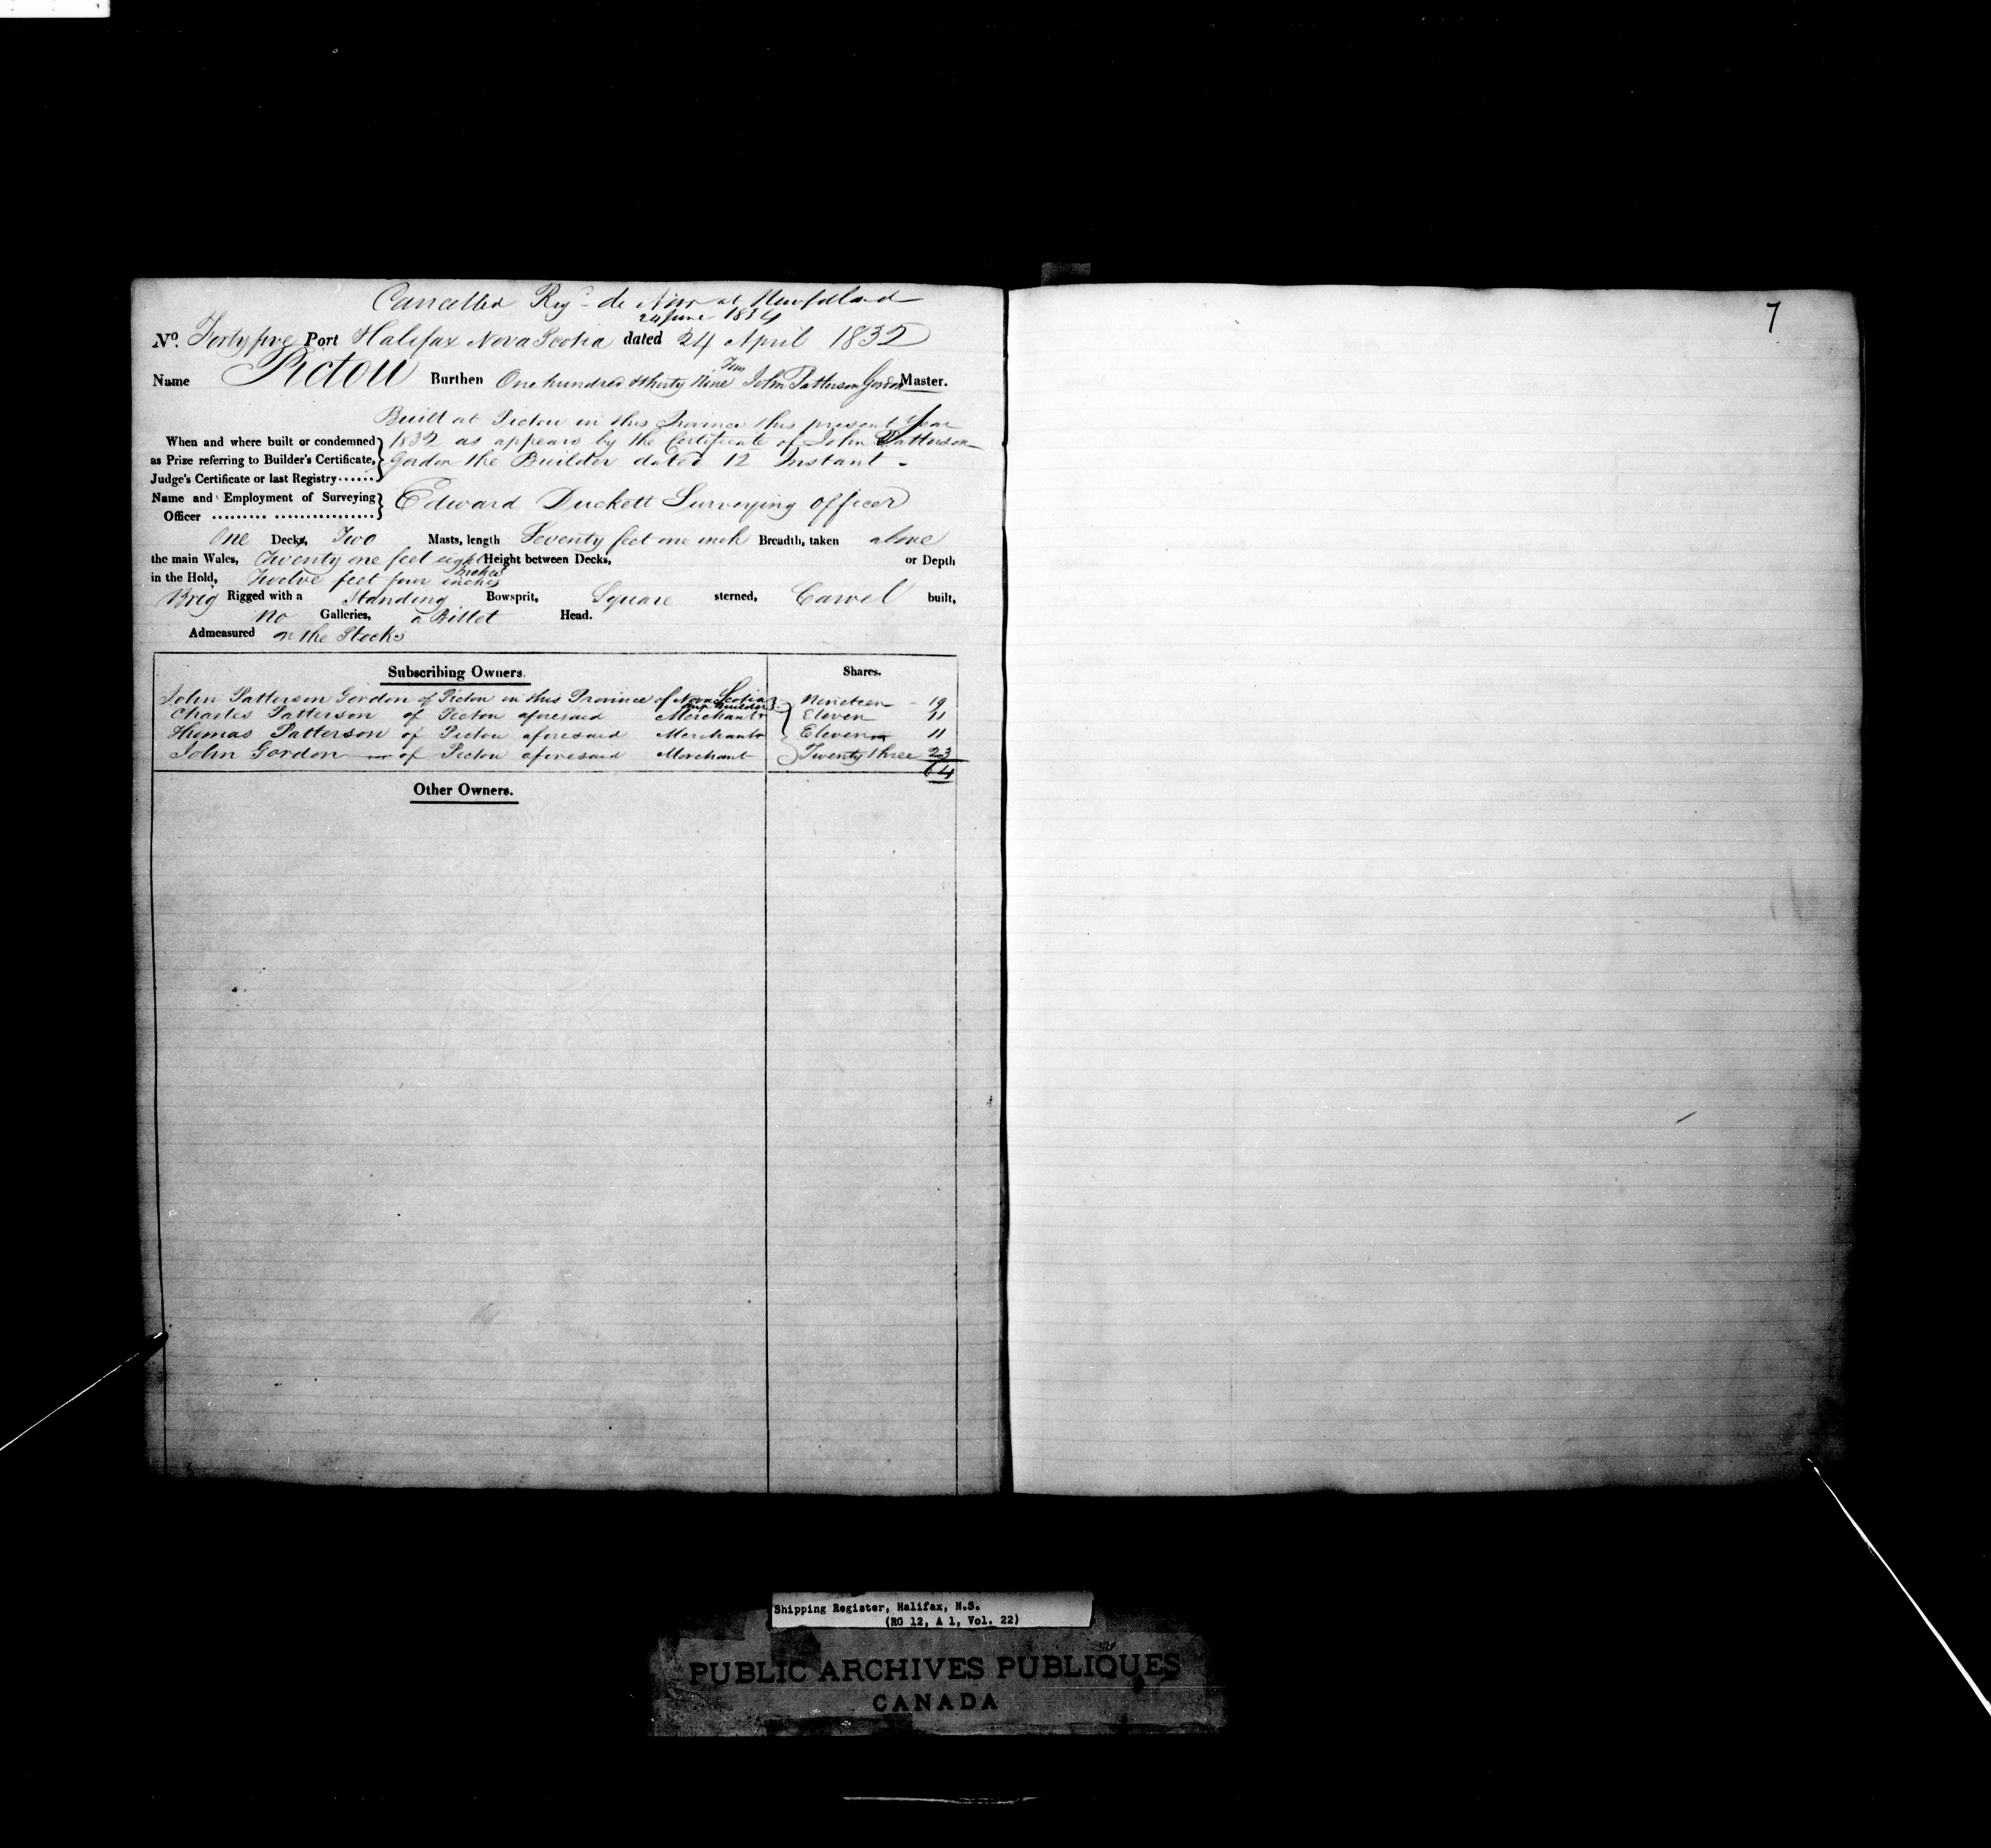 Cancelled Regd de Novo at Newfdland
24 June 1834
No. Forty five Port Halifax Nova Scotia dated 24 April 1832
Name Pictou Burthen One hundred & thirty Nine Tons John Patterson Gordon Master.
Built at Pictou in this Province this present Year
When and where built or condemned 1832 as appears by the Certificate of John Patterson
as Prize referring to Builder's Certificate, Gordon the Builder dated 12 Instant -
Judge's Certificate or last Registry......
Name and Employment of Surveying Edward Duckett Surveying Officer
Officer ......... ................
One Decks, Two Masts, length Seventy feet one inch Breadth, taken above
the main Wales, Twenty one feet eight Inches Height between Decks, or Depth
in the Hold, Twelve feet four inches
Brig Rigged with a Standing Bowsprit, Square sterned, Carvel built,
No Galleries, a Billet Head.
Admeasured on the Stocks
Subscribing Owners. Shares.
John Patterson Gordon of Pictou in this Province of Nova Scotia Ship Builder Nineteen - 19
Charles Patterson of Pictou aforesaid Merchant Eleven 11
Thomas Patterson of Pictou aforesaid Merchant Eleven 11
John Gordon of Pictou aforesaid Merchant Twenty three 23
64
Other Owners.
7
Shipping Register, Halifax, N.S.
(RG 12, A 1, Vol. 22)
PUBLIC ARCHIVES PUBLIQUES
CANADA